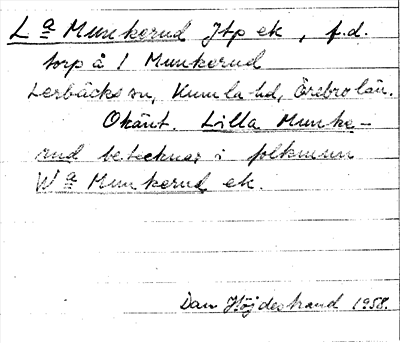 La Munkerud Jtp ek, f.d.
torp å 1 Munkerud
Lerbäcks sn, Kumla hd, Örebro län.
Okänt. Lilla Munke-
rud betecknar i folkmun
Wa Munkerud ek.
Dan Höjdestrand 1958.